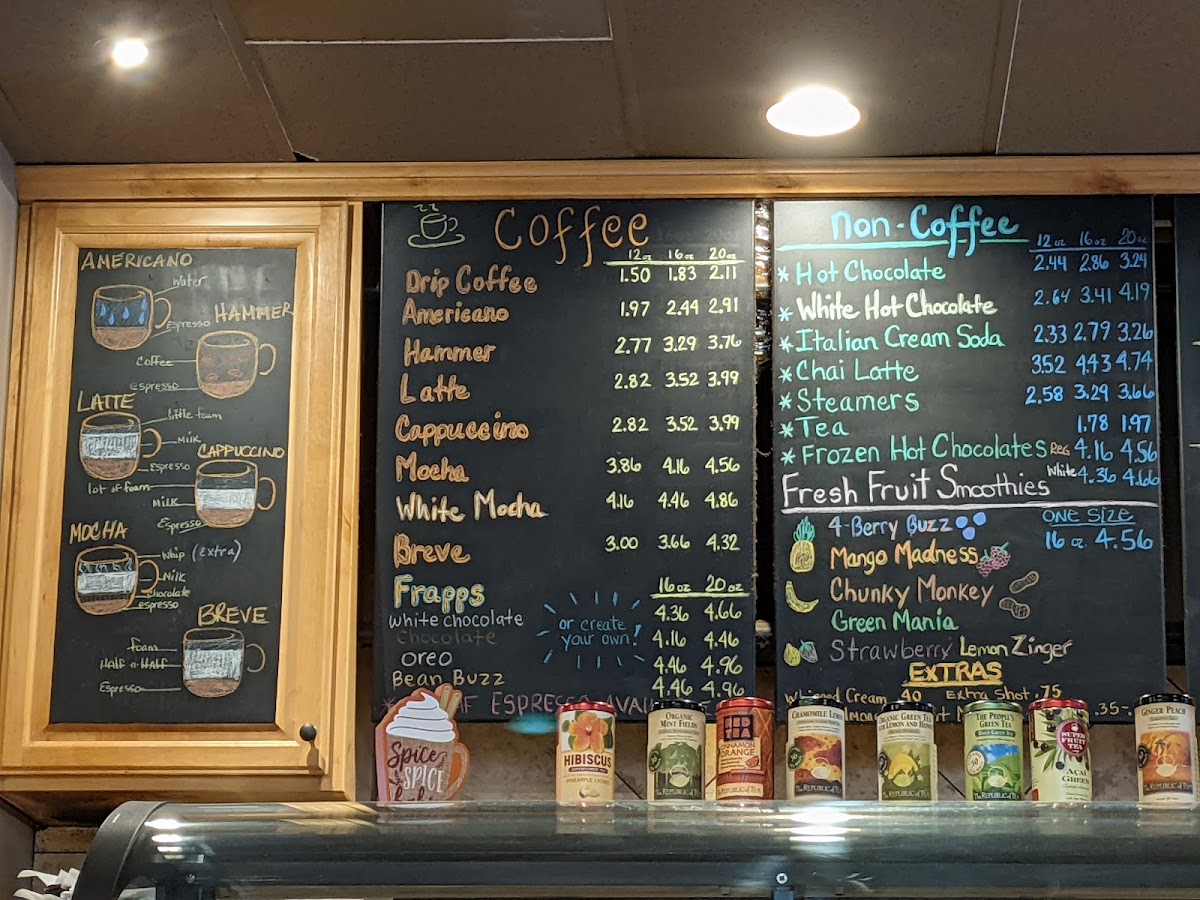 AMERICANO
Water
Espresso
HAMMER
Coffee
espresso
LATTE
little foam
Milk
Espresso
CAPPUCCINO
lot of foam
Milk
Espresso
MOCHA
Whip (Extra)
Milk
Chocolate
espresso
BREVE
foam
Half n Half
Espresso
Coffee
12 oz 16 oz 20 oz
Drip Coffee 1.50 1.83 2.11
Americano 1.97 2.44 2.91
Hammer 2.77 3.29 3.76
Latte 2.82 3.52 3.99
Cappuccino 2.82 3.52 3.99
Mocha 3.86 4.16 4.56
White Mocha 4.16 4.46 4.86
Breve 3.00 3.66 4.32
Frapps 16 oz 20 oz
white chocolate 4.36 4.66
Chocolate 4.16 4.46
oreo 4.46 4.96
Bean Buzz 4.46 4.96
or create
your own!
ESPRESSO
non-Coffee
12 oz 16 oz 20 oz
* Hot Chocolate 2.44 2.86 3.24
* White Hot Chocolate 2.64 3.41 4.19
* Italian Cream Soda 2.33 2.79 3.26
* Chai Latte 3.52 4.43 4.74
* Steamers 2.58 3.29 3.66
* Tea 1.78 1.97
* Frozen Hot Chocolates Reg 4.16 4.56
White 4.36 4.66
Fresh Fruit Smoothies
4-Berry Buzz
ONE SIZE
16 oz 4.56
Mango Madness
Chunky Monkey
Green Mania
Strawberry Lemon Zinger
EXTRAS
Whipped Cream .40 Extra Shot .75
.35
Spice
SPICE
HIBISCUS
PINEAPPLE
ORGANIC
MINT FIELDS
THE REPUBLIC OF TEA
RED
TEA
CINNAMON
ORANGE
CHAMOMILE LEMON
THE REPUBLIC OF TEA
ORGANIC GREEN TEA
LEMON AND HONEY
THE REPUBLIC OF TEA
THE PEOPLE'S
GREEN TEA
THE REPUBLIC OF TEA
SUPER
FRUIT
TEA
ACAI
GREEN
GINGER PEACH
THE REPUBLIC OF TEA